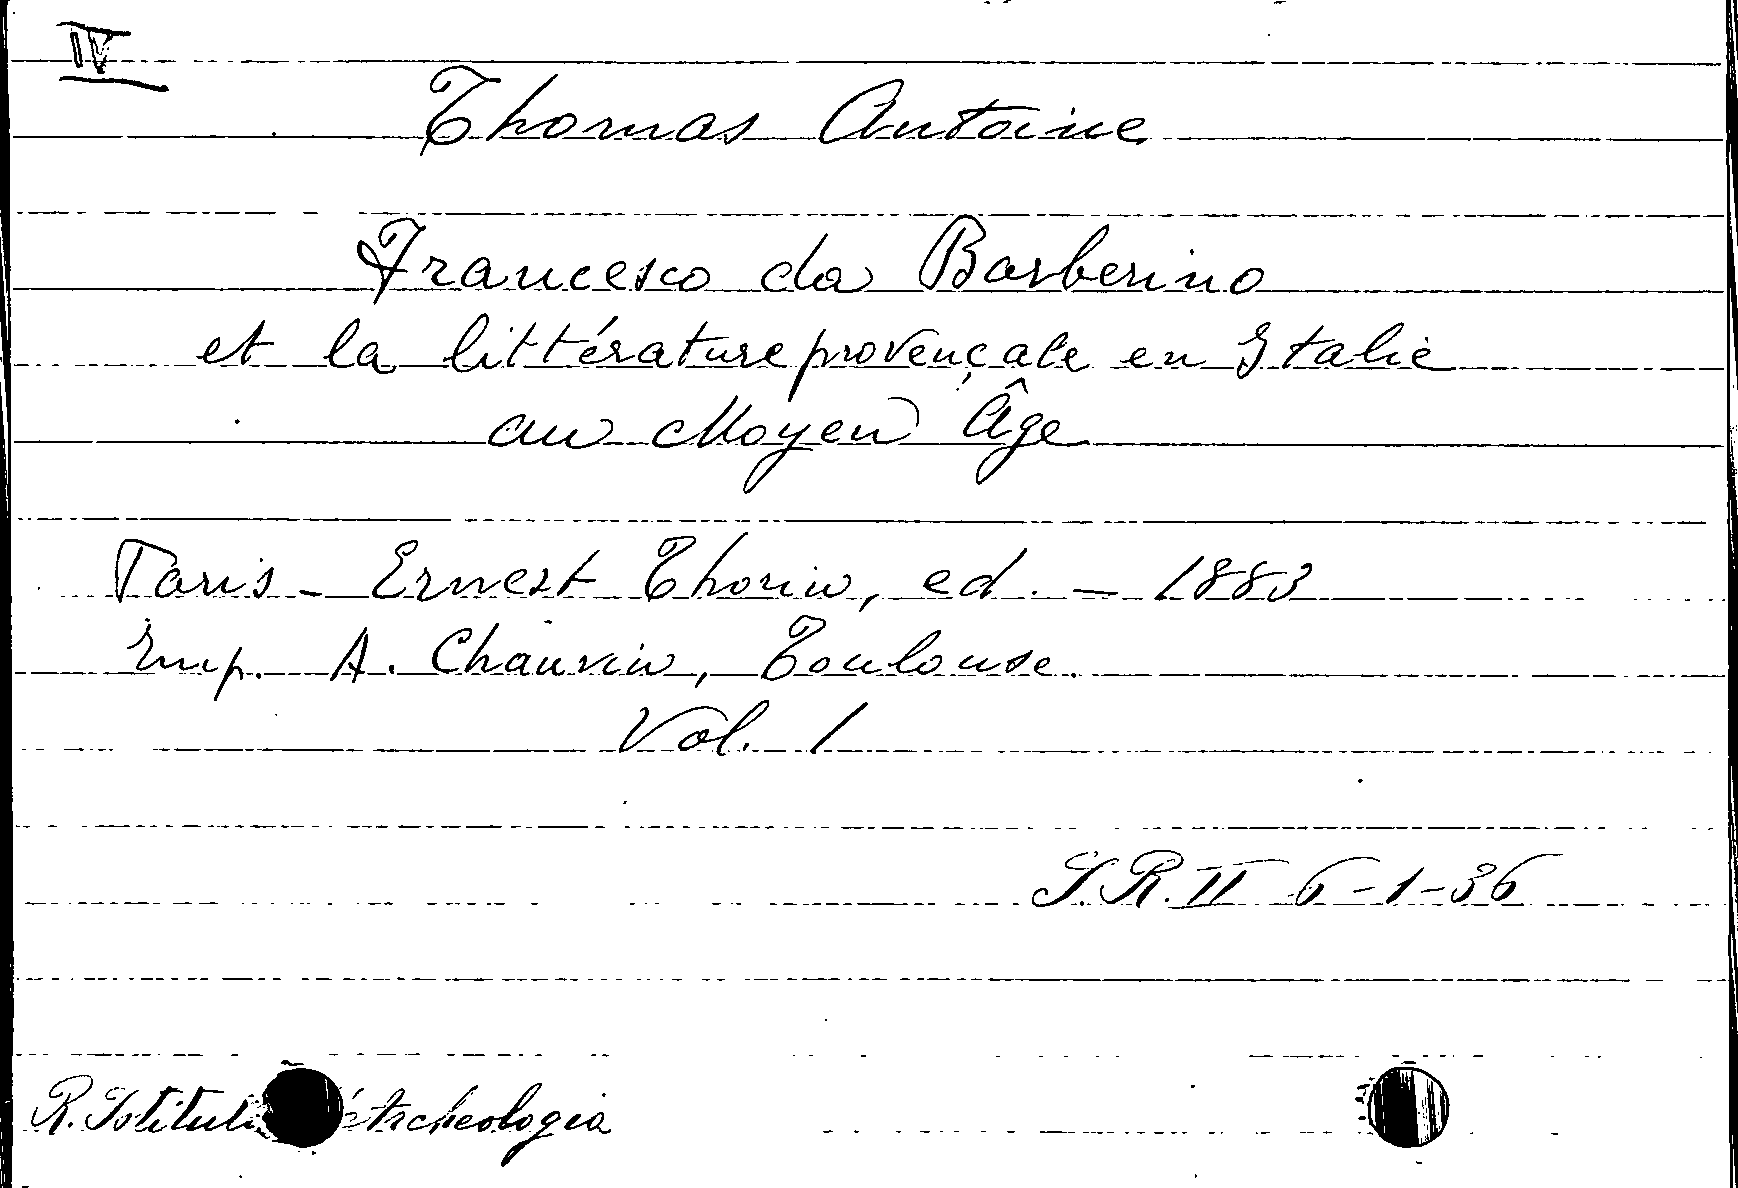 IV
Thomas Antoine
Francesco da Barberino
et la littérature provençale en Italie
au Moyen Âge
Paris - Ernest Thorin, ed. - 1883
Imp. A. Chauvin, Toulouse.
Vol. 1
S.R. II 6-1-36
R. Archeologia